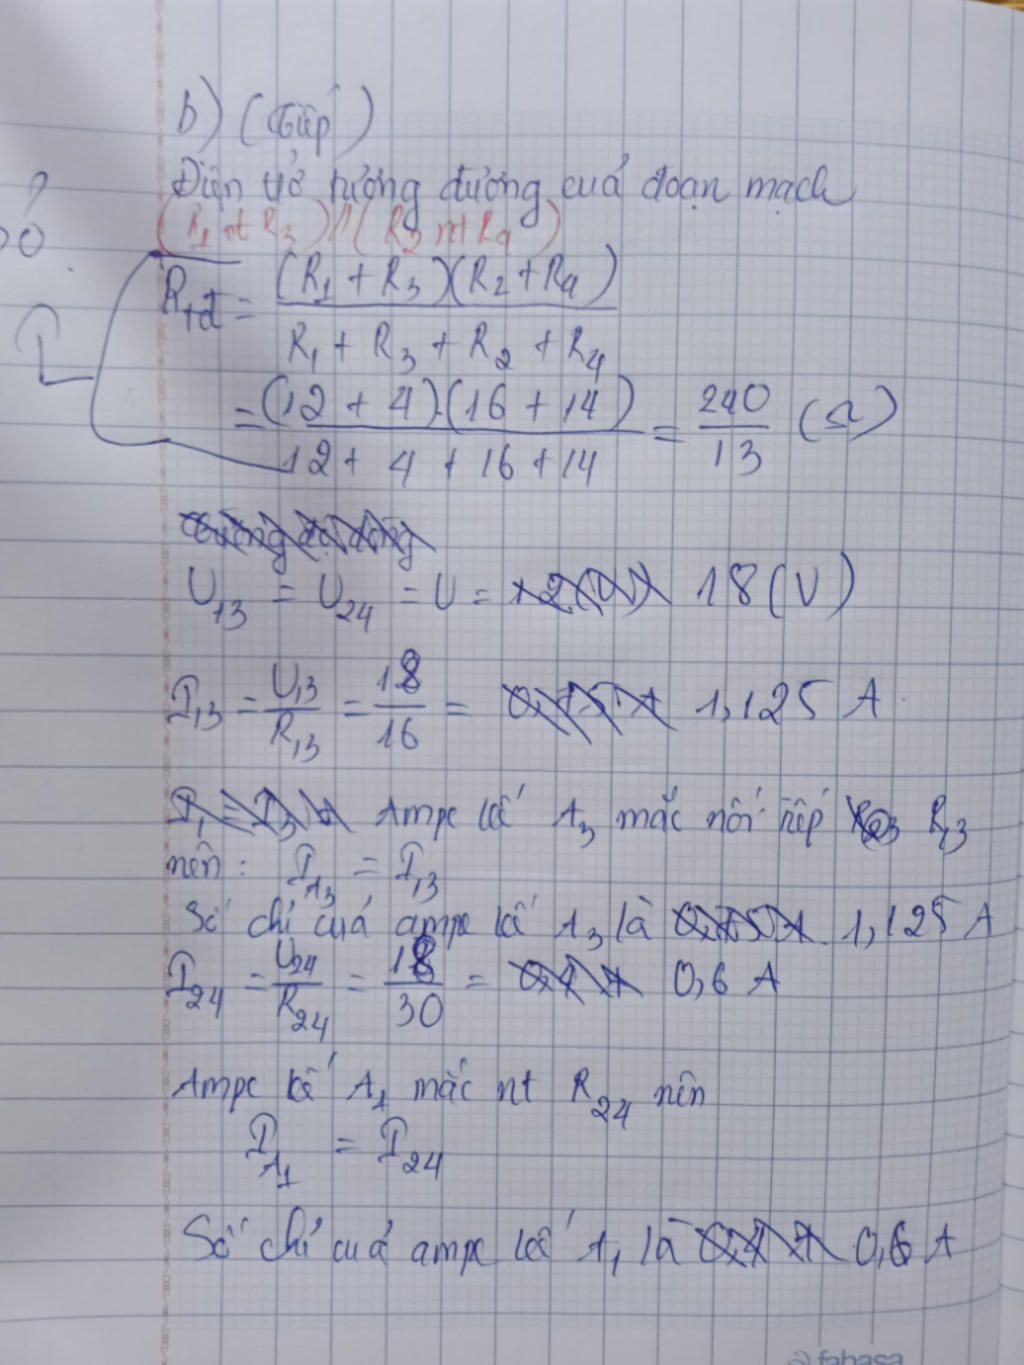 b) (tiếp)
Điện trở tương đương cuả đoạn mạch
?
(R1 nt R3)//(R2 nt R4)
Rtđ = (R1 + R3)(R2 + R4) / R1 + R3 + R2 + R4
= (12 + 4).(16 + 14) / 12 + 4 + 16 + 14 = 240 / 13 (Ω)
U13 = U24 = U = 18 (V)
I13 = U13 / R13 = 18 / 16 = 1,125 A
Ampe kế A3 mắc nối tiếp R13
nên: IA3 = I13
Số chỉ cuả ampe kế A3 là 1,125 A
I24 = U24 / R24 = 18 / 30 = 0,6 A
Ampe kế A1 mắc nt R24 nên
IA1 = I24
Số chỉ cuả ampe kế A1 là 0,6 A
fahasa